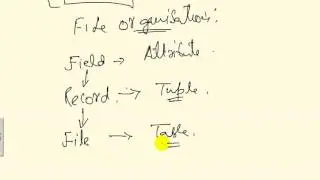 File organisation:
Field → Attribute.
Record. → Tuple.
File → Table.